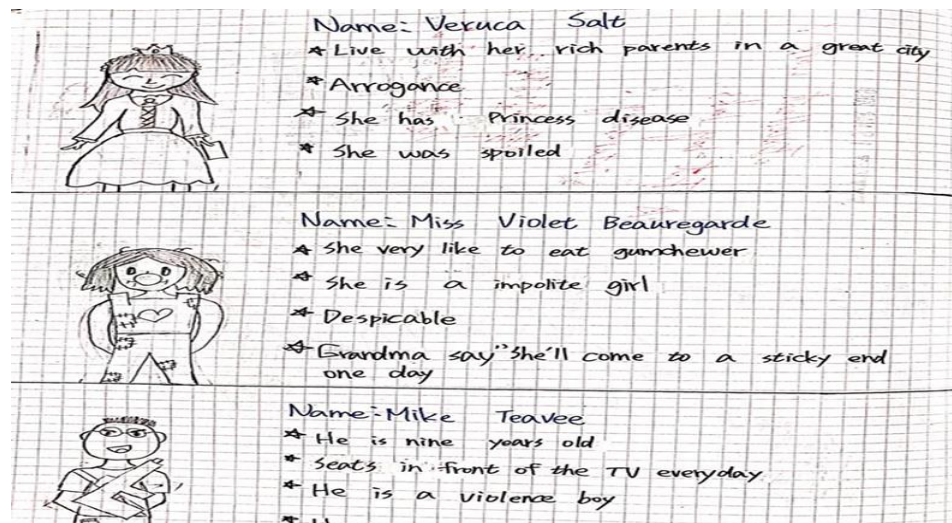 Name: Veruca Salt
* Live with her rich parents in a great city
* Arrogance
* She has Princess disease
* She was spoiled
Name: Miss Violet Beauregarde
* She very like to eat gumchewer
* She is a impolite girl
* Despicable
* Grandma say "She'll come to a sticky end
one day
Name: Mike Teavee
* He is nine years old
* Seats in front of the TV everyday
* He is a violence boy